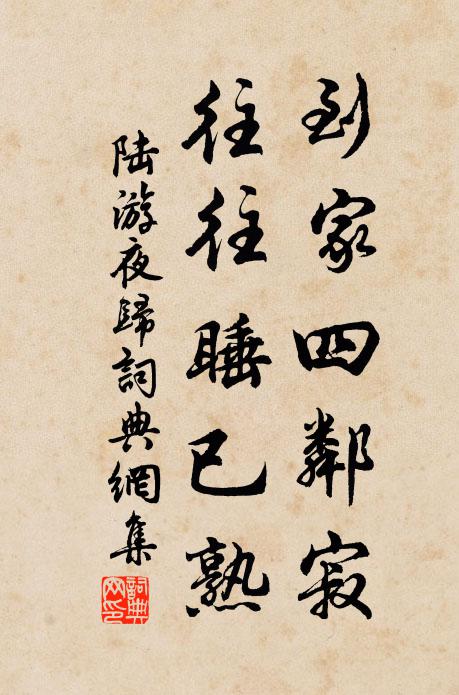 到家四鄰寂
往往睡已熟
陸游夜歸詞典網集
詞典網印